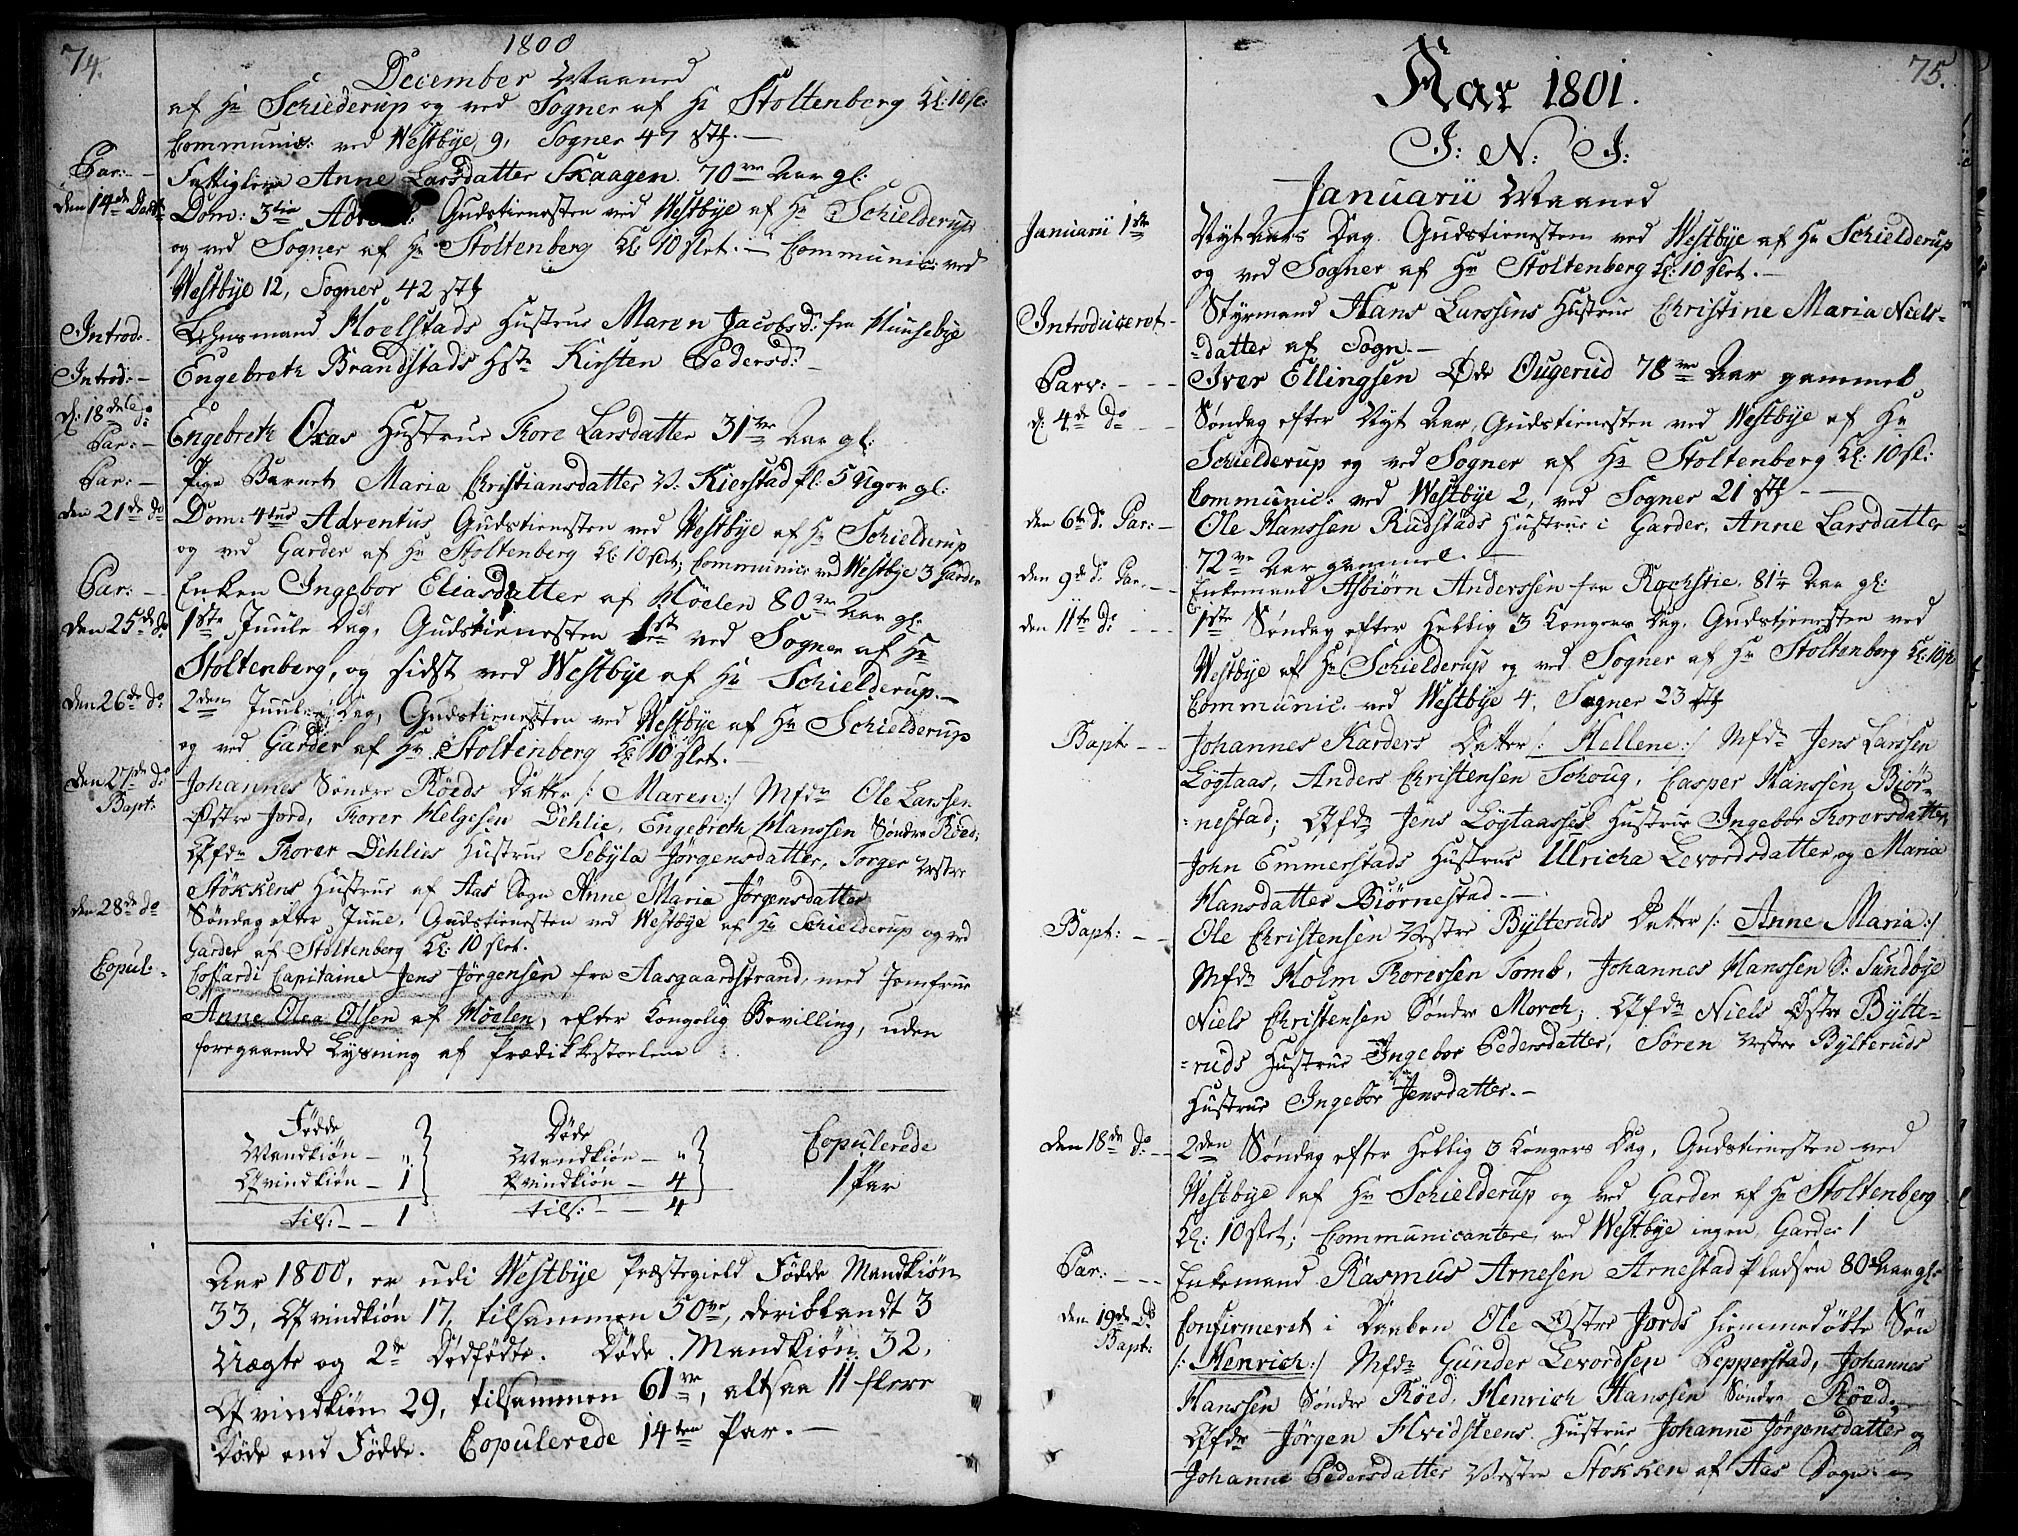 74.
1800
December Maaned
af Hr Schielderup og ved Sogner af Hr Stoltenberg Kl: 10 sl:
Communic: ved Westbye 9, Sogner 47 stk. —
Par: — Fattiglem Anne Larsdatter Skaagen 70ve Aar gl:
den 14de Decbr Dom: 3tia Advent: Gudstienesten ved Westbye af Hr Schielderup
og ved Sogner af Hr Stoltenberg Kl: 10 slet. — Communic: ved
Westbye 12, Sogner 42 stk
Introd. Lehnsmand Hoelstads Hustrue Maren Jacobsd: fra Huusebye
Introd: — Engebreth Brandstads Hste Kirsten Pedersd: —
d: 18de do
Par: — Engebreth Oxas Hustrue Thore Larsdatter 31te Aar gl:
Par: — Pige Barnet Maria Christiansdatter v: Kierstad pl: 5 Uger gl:
den 21de do Dom: 4tus Adventus Gudstienesten ved Westbye af Hr Schielderup
og ved Garder af Hr Stoltenberg Kl: 10 slet, Communic: ved Westbye 3 Garder
Par: — Enken Ingebor Eliasdatter af Höelen 80ve Aar gl:
den 25de do 1ste Juule Dag, Gudstienesten 1st ved Sogner af Hr
Stoltenberg, og sidst ved Westbye af Hr Schielderup. —
den 26de do 2den Juule Dag, Gudstienesten ved Westbye af Hr Schielderup
og ved Garder af Hr Stoltenberg Kl: 10 slet. —
den 27de do Johannes Söndre Röeds Datter /: Maren :/ Mfdr Ole Larssen
Bapt: Östre Jord, Thorer Helgesen Dehlie, Engebreth Hanssen Söndre Röed;
Qfdr Thorer Dehlies Hustrue Sebyla Jörgensdatter, Torger Vestre
Stökkens Hustrue af Aas Sogn Anne Maria Jörgensdatter
den 28de do Söndag efter Juule, Gudstienesten ved Westbye af Hr Schielderup og ved
Garder af Stoltenberg Kl: 10 slet.
Copul: Coffardi Capitaine Jens Jörgensen fra Aasgaardstrand, med Jomfrue
Anne Olea Olsen af Höelen, efter Kongelig Bevilling, uden
foregaaende Lysning af Prædikkestoelen
Födde Döde Copulerede
Mandkiön — „ Mandkiön — „ 1 Par
Qvindkiön — 1 Qvindkiön — 4
tils: — 1 tils: — 4
Aar 1800, er udi Westbye Præstegield Födde Mandkiön
33, Qvindkiön 17, tilsammen 50ve, deriblandt 3
Uægte og 2de Dödfödte. Döde Mandkiön 32,
Qvindkiön 29, tilsammen 61ve, altsaa 11 flere
Döde end Födde. Copulerede 14ten Par. —
75.
Aar 1801.
J: N: J:
Januarii Maaned
Januarii 1ste Nyt Aars Dag. Gudstienesten ved Westbye af Hr Schielderup
og ved Sogner af Hr Stoltenberg Kl: 10 slet. —
Introduceret — Styrmand Hans Larssens Hustrue Christine Maria Niels-
-datter af Sogn. —
Parv: — Iver Ellingsen Öde Ougerud 78ve Aar gammel
d: 4de do Söndag efter Nyt Aar, Gudstienesten ved Westbye af Hr
Schielderup og ved Sogner af Hr Stoltenberg Kl: 10 sl:
Communic: ved Westbye 2, ved Sogner 21 stk —
den 6te do Par: — Ole Hanssen Rudstads Hustrue i Garder, Anne Larsdatter
72ve Aar gammel. —
den 9de do Par. — Enkemand Asbiörn Anderssen fra Rochstie 81te Aar gl:
den 11te do 1ste Söndag efter Hellig 3 Kongers Dag, Gudstjenesten ved
Westbye af Hr Schielderup og ved Sogner af Hr Stoltenberg Kl: 10 sl
Communic. ved Westbye 4, Sogner 23 stk
Bapt — Johannes Karders Datter /: Hellene :/ Mfdr Jens Larssen
Lögtaas, Anders Christensen Schoug, Casper Hanssen Biör-
-nestad; Qfdr Jens Lögtaasses Hustrue Ingebor Thorersdatter,
John Emmerstads Hustrue Ulricha Levordsdatter og Maria
Hansdatter Biörnestad —
Bapt: — Ole Christensen Vestre Bylteruds Datter /: Anne Maria :/
Mfdr Holm Thorersen Tomb, Johannes Hanssen S: Sundbye
Niels Christensen Söndre Morch; Qfdr Niels Östre Bylte-
-ruds Hustrue Ingebor Pedersdatter, Sören Vestre Bylteruds
Hustrue Ingebor Jensdatter. —
den 18de do 2den Söndag efter Hellig 3 Kongers Dag, Gudstienesten ved
Westbye af Hr Schielderup og ved Garder af Hr Stoltenberg
Kl: 10 slet; Communicantere, ved Westbye ingen, Garder 1
Par: — Enkemand Rasmus Arnesen Arnestad Pladsen 80 Aar gl:
den 19de do Confirmeret i Daaben Ole Östre Jords hiemmedöbte Sön
Bapt: /: Henrich :/ Mfdr Gunder Levordsen Pepperstad, Johannes
Hanssen Söndre Röed, Henrich Hanssen Söndre Röed.
Qfdr Jörgen Hvidsteens Hustrue Johanne Jörgensdatter og
Johanne Pedersdatter Vestre Stökken af Aas Sogn. —